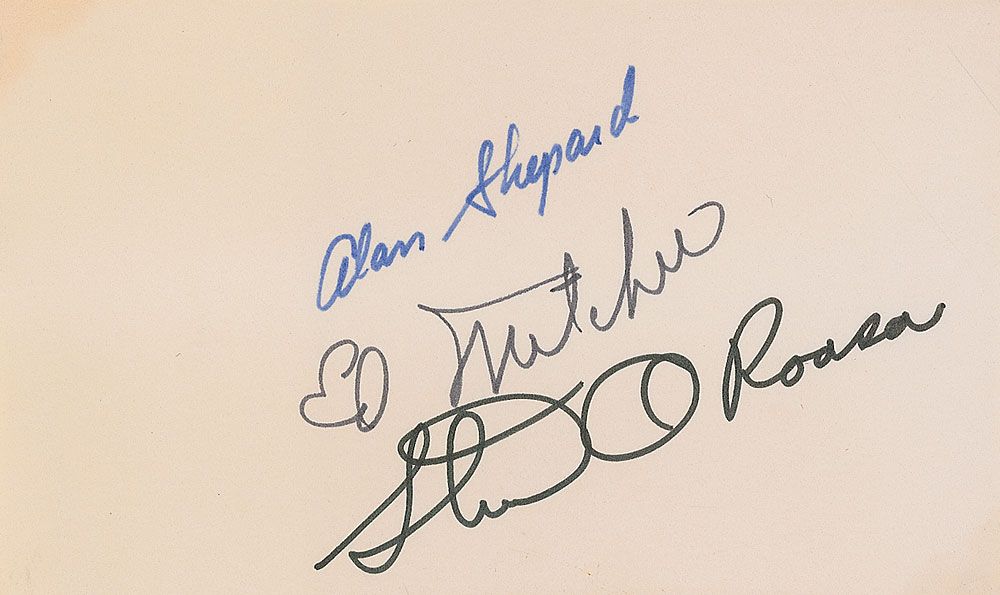 Alan Shepard
Ed Mitchell
Stuart A Roosa